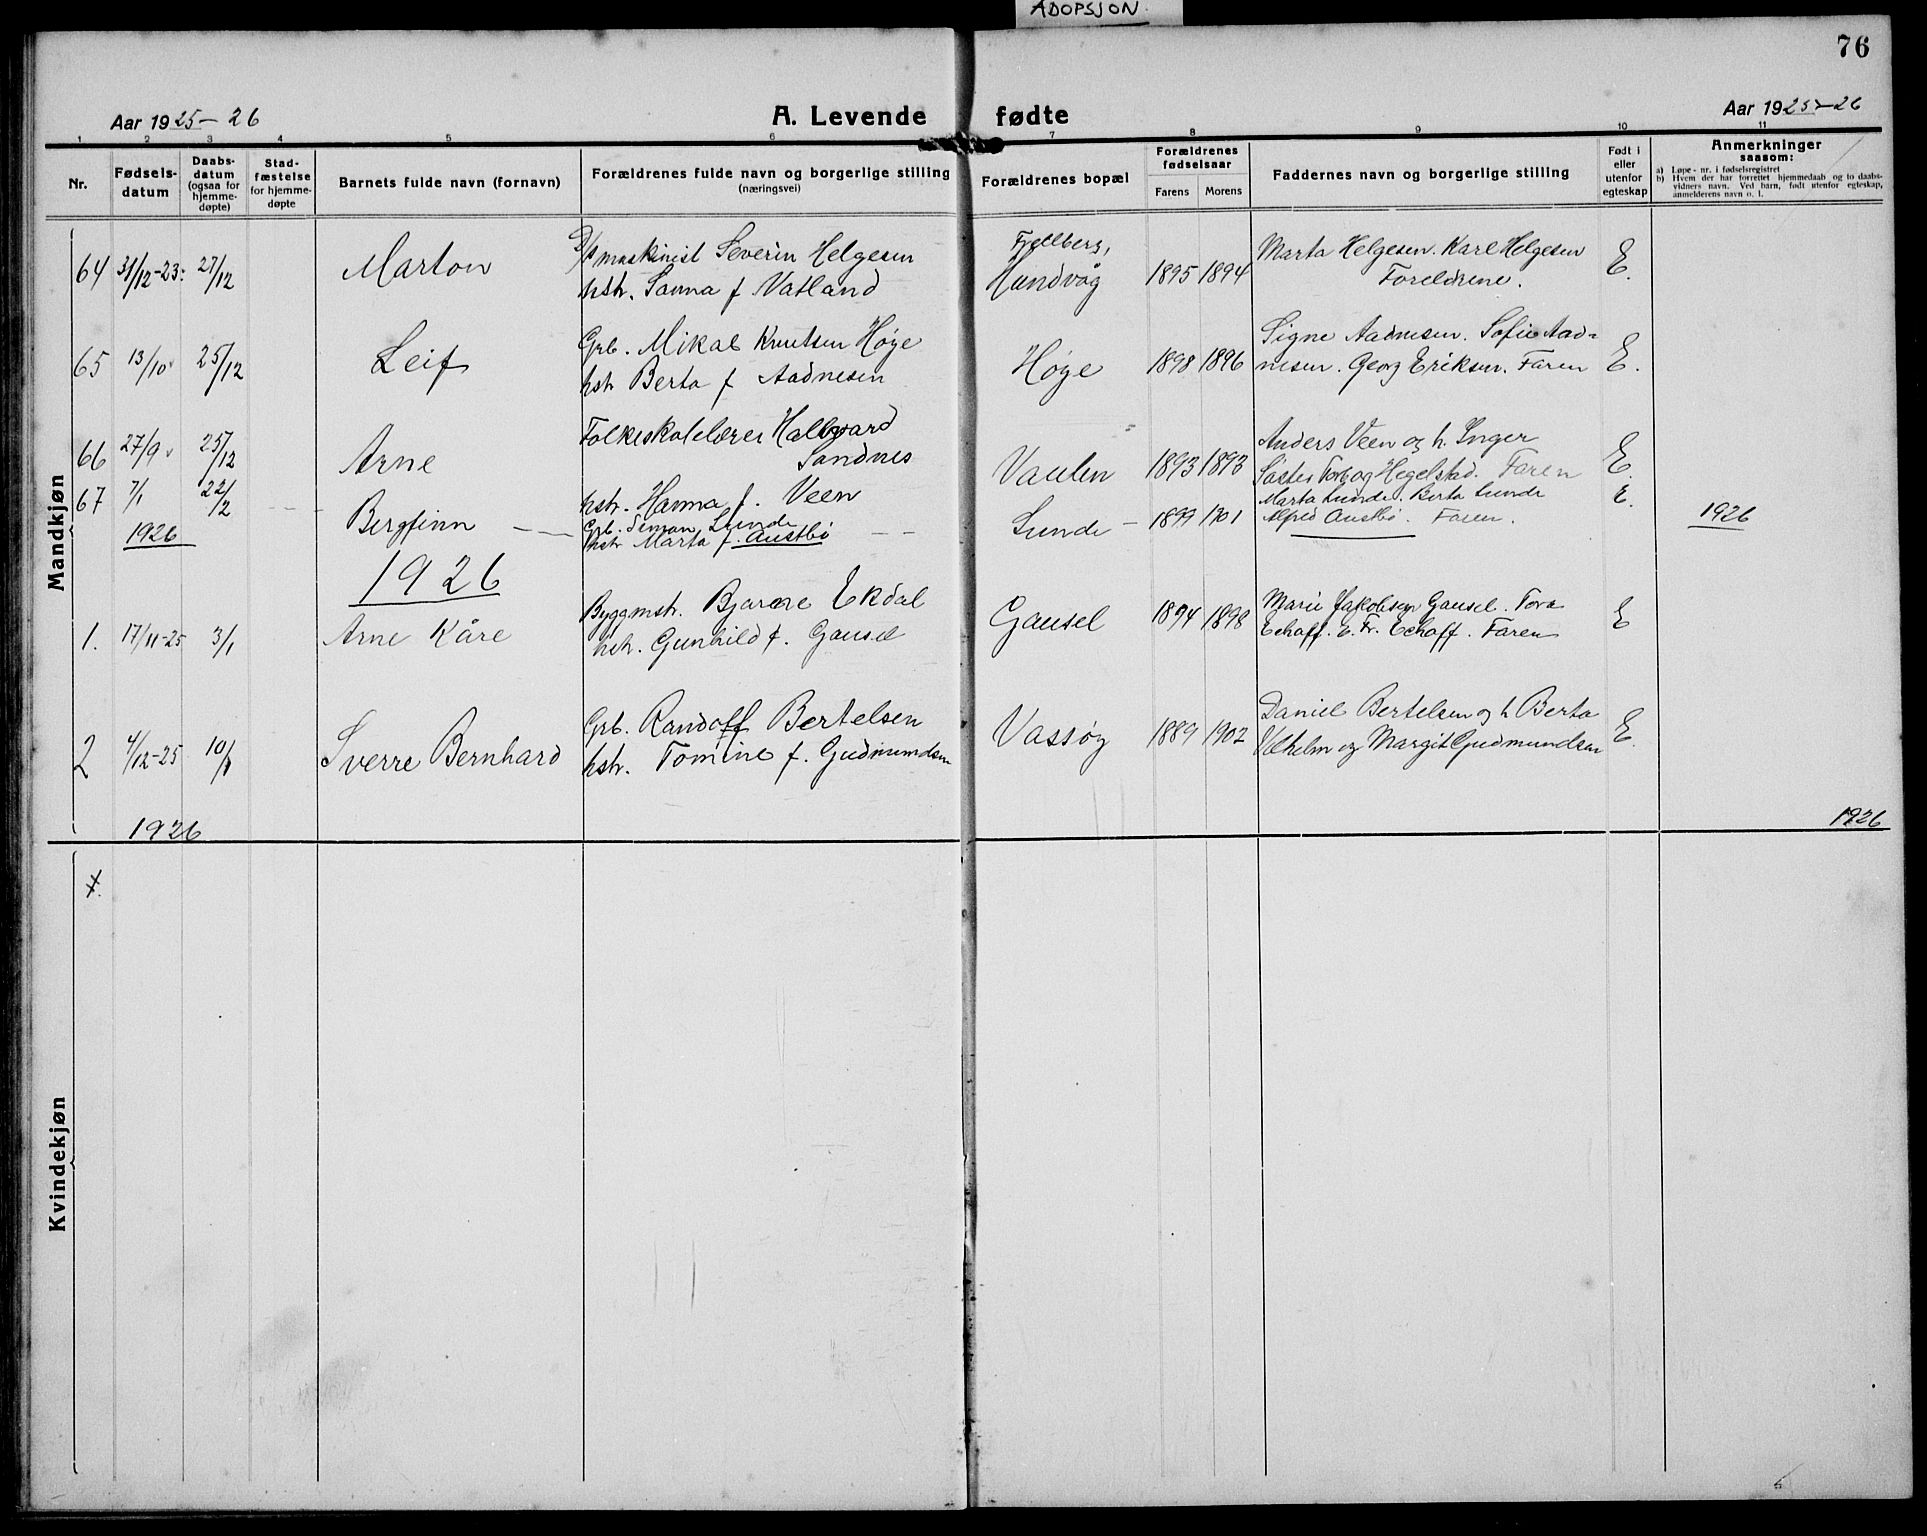 ADOPSJON
76
Aar 1925-26
A. Levende fødte
Aar 1925-26
1 2 3 4 5 6 7 8 9 10 11
Nr.
Fødsels-
datum
Daabs-
datum
(ogsaa for
hjemme-
døpte)
Stad-
fæstelse
for hjemme-
døpte
Barnets fulde navn (fornavn)
Forældrenes fulde navn og borgerlige stilling
(næringsvei)
Forældrenes bopæl
Forældrenes
fødselsaar
Farens Morens
Faddernes navn og borgerlige stilling
Født i
eller
utenfor
egteskap
Anmerkninger
saasom:
a) Løpe-nr. i fødselsregistret
b) Hvem der har forrettet hjemmedaab og to daabs-
vidners navn. Ved barn, født utenfor egteskap,
anmelderens navn o. l.
Mandkjøn
64 31/12-23 27/12 Marton
maskinist Severin Helgesen
hstr. Sanna f Vatland
Fjellberg,
Hundvåg
1895 1894
Marta Helgesen. Karl Helgesen
Foreldrene.
E.
65 13/10 25/12 Leif
Grb. Mikal Knutsen Høge
hstr Berta f Aadnesen
Høge
1898 1896
Signe Aadnesen. Sofie Aad-
nesen. Georg Eriksen. Faren
E.
66 27/9 25/12 Arne
Folkeskolelærer Hallvard
Sandnes
hstr. Hanna f. Veen
Vaulen
1893 1893
Anders Veen og h. Inger
Søster Torborg Hegelstad. Faren
E.
67 7/1 22/2 Bergfinn
1926
Grb. Simon Lunde
hstr Marta f. Austbø
Lunde
1899 1901
Marta Lunde. Berta Lunde
Alfred Austbø. Faren.
E.
1926
1926
1. 17/11-25 3/1 Arne Kåre
Byggmstr. Bjarne Ekdal
hstr. Gunhild f. Gausel
Gausel
1894 1898
Marie Jakobsen Gausel. Tora
Echoff. E. Fr. Echoff. Faren
E
2 4/12-25 10/1 Sverre Bernhard
Grb. Randoff Bertelsen
hstr. Tomine f. Gudmundsen
Vassøy
1889 1902
Daniel Bertelsen og h Berta
Vilhelm og Margit Gudmundsen
E.
1926
1926
Kvindekjøn